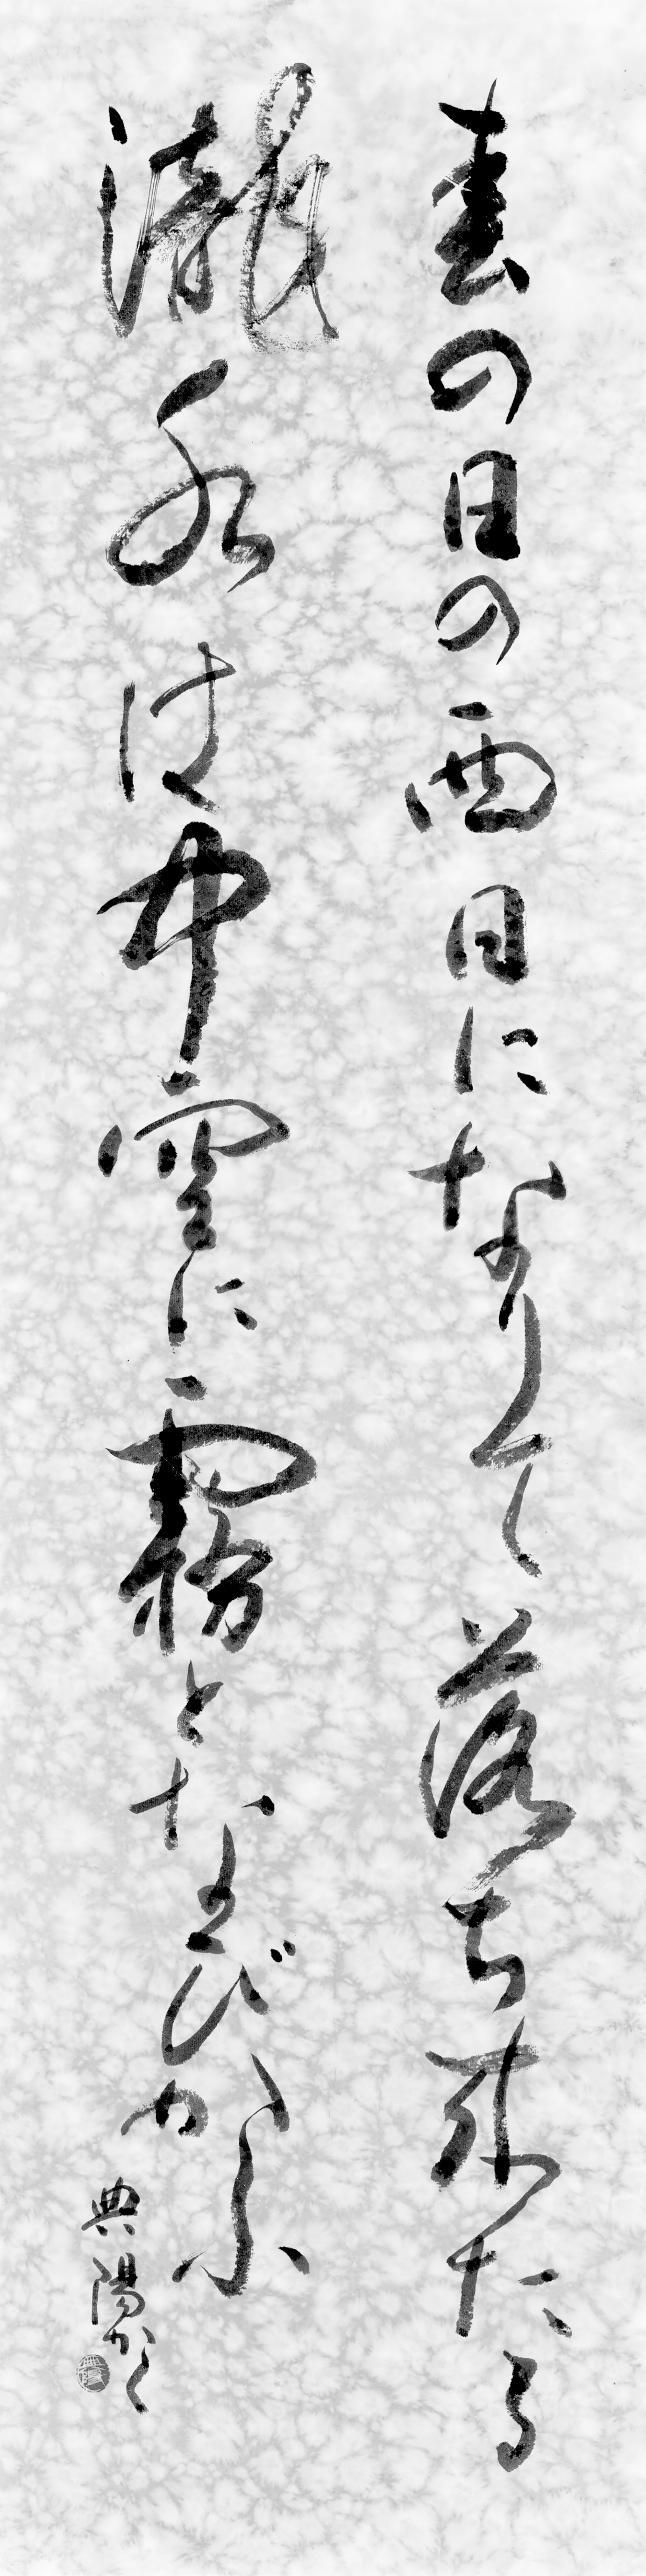 春の日の西日になりて落ち来たる
瀧水は中空に霧となびかふ
典陽かく